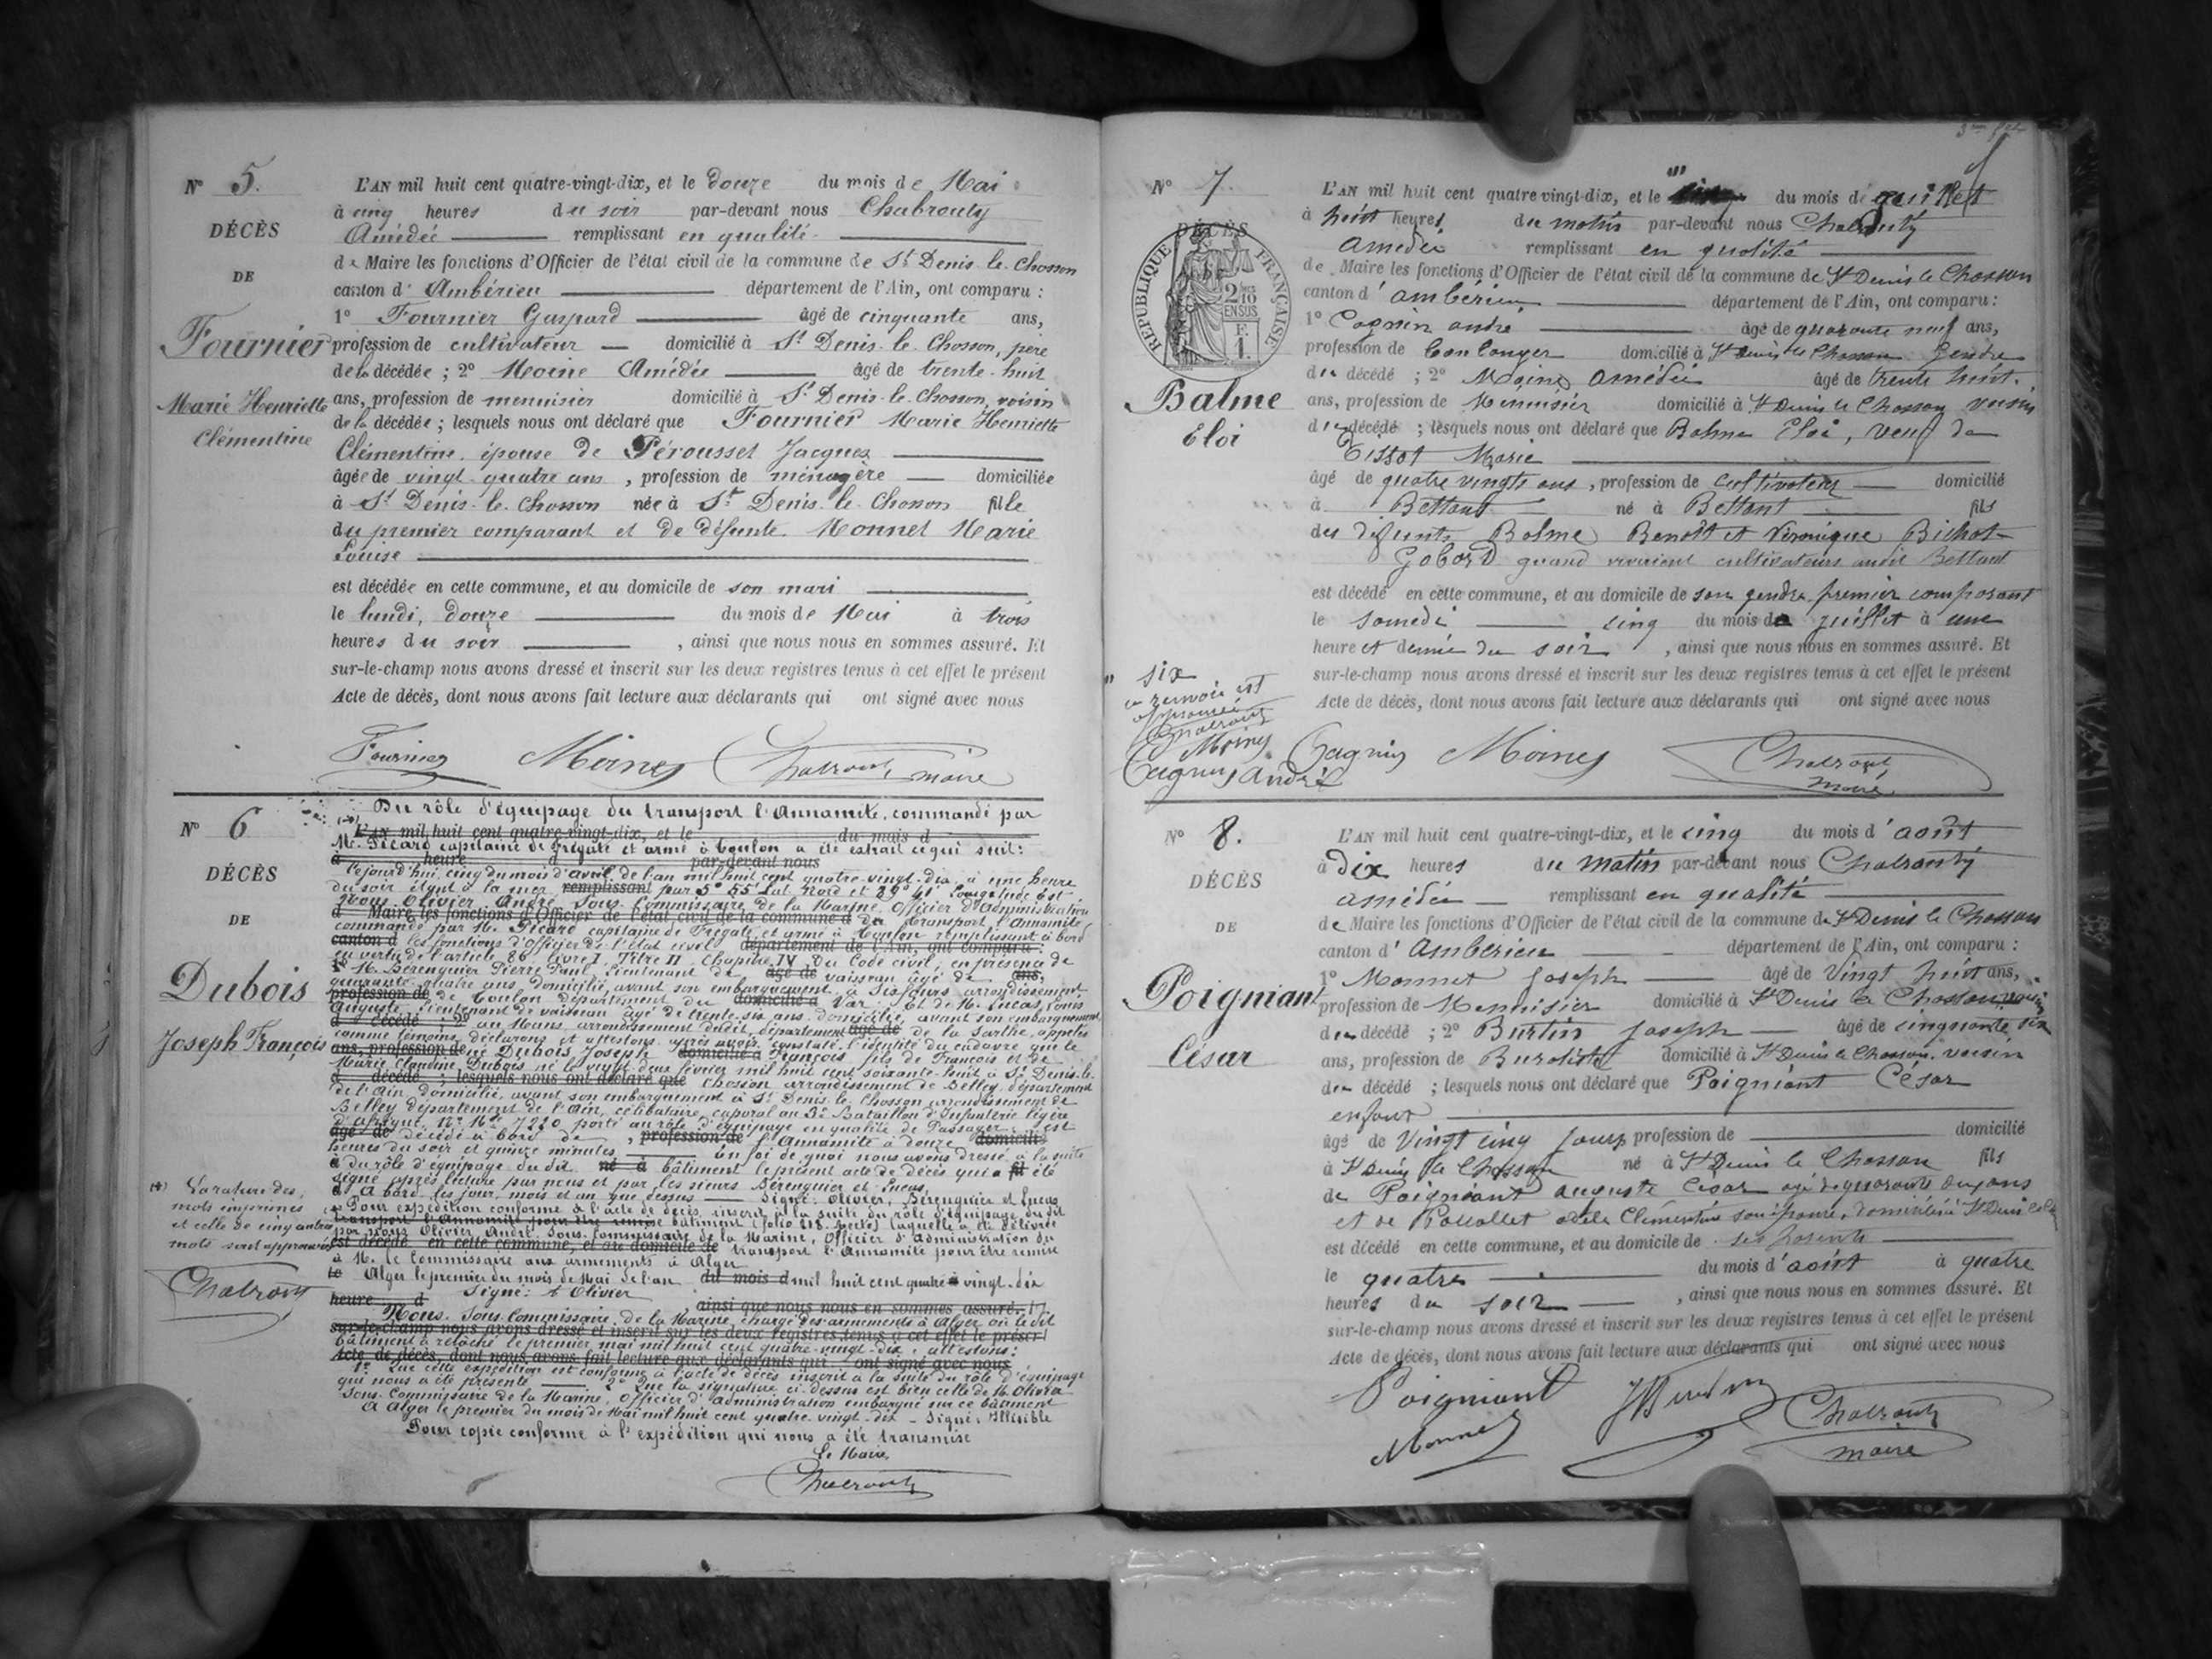 N° 5.
DÉCÈS
DE
Fournier
Marie Henriette
Clémentine
L'AN mil huit cent quatre-vingt-dix, et le douze du mois de Mai
à cinq heures du soir par-devant nous Chabrouty
Amédée remplissant en qualité
de Maire les fonctions d'Officier de l'état civil de la commune de St Denis-le-Chosson
canton d'Ambérieu département de l'Ain, ont comparu :
1° Fournier Gaspard âgé de cinquante ans,
profession de cultivateur domicilié à St Denis-le-Chosson, père
de la décédée ; 2° Moine Amédée âgé de trente-huit
ans, profession de menuisier domicilié à St Denis-le-Chosson, voisin
de la décédée ; lesquels nous ont déclaré que Fournier Marie Henriette
Clémentine, épouse de Pérousset Jacques
âgée de vingt-quatre ans, profession de ménagère domiciliée
à St Denis-le-Chosson née à St Denis-le-Chosson fille
du premier comparant et de défunte Monnet Marie
Louise
est décédée en cette commune, et au domicile de son mari
le lundi, douze du mois de Mai à trois
heures du soir, ainsi que nous nous en sommes assuré. Et
sur-le-champ nous avons dressé et inscrit sur les deux registres tenus à cet effet le présent
Acte de décès, dont nous avons fait lecture aux déclarants qui ont signé avec nous
Fournier Moine Chabrouty maire
N° 6
DÉCÈS
DE
Dubois
Joseph François
(+) La rature des
mots imprimés
et celle de cinq autres
mots sont approuvées
Chabrouty
Du rôle d'équipage du transport l'Annamite, commandé par
L'AN mil huit cent quatre-vingt-dix, et le du mois d
M. Picard capitaine de Frégate et armé à Toulon a été extrait ce qui suit :
à heure par-devant nous
Cejourd'hui cinq du mois d'avril de l'an mil huit cent quatre-vingt-dix à une heure
du soir étant à la mer remplissant par 5° 55' Lat Nord et 89° 41' Longitude Est
Nous Olivier André Sous-Commissaire de la Marine, Officier d'Administration
d Maire les fonctions d'Officier de l'état civil de la commune d du transport l'Annamite
commandé par M. Picard capitaine de Frégate et armé à Toulon remplissant à bord
canton d les fonctions d'Officier de l'état civil département de l'Ain, ont comparu :
en vertu de l'article 86 livre I, Titre II, Chapitre IV du Code civil, en présence de
1° M. Bérenguier Pierre Paul, Lieutenant de âgé de vaisseau âgé de ans,
quarante-quatre ans domicilié, avant son embarquement, à Six-fours arrondissement
profession de de Toulon département du domicilié à Var et de M. Lucas, Louis
Auguste, Lieutenant de vaisseau âgé de trente-six ans domicilié, avant son embarquement
d décédé ; 2° au Mans, arrondissement dudit, département âgé de de la Sarthe, appelés
comme témoins, déclarons et attestons, après avoir constaté l'identité du cadavre que le
ans, profession de né Dubois Joseph domicilié à François fils de François et de
Marie Claudine Dubois né le vingt-deux février mil huit cent soixante-huit à St Denis-le-
d décédé ; lesquels nous ont déclaré que Chosson arrondissement de Belley, département
de l'Ain, domicilié, avant son embarquement à St Denis-le-Chosson arrondissement de
Belley département de l'Ain, célibataire, caporal au 3e Bataillon d'Infanterie légère
d'afrique, N° Mle 7220 porté au rôle d'équipage en qualité de Passager, est
âgé de décédé à bord de, profession de l'Annamite à douze domicilié
heures du soir et quinze minutes en foi de quoi nous avons dressé à la suite
à du rôle d'équipage du dit né à bâtiment le présent acte de décès qui a fil été
signé après lecture par nous et par les sieurs Bérenguier et Lucas.
d A bord, les jour, mois et an que dessus Signé : Olivier, Bérenguier et Lucas
Pour expédition conforme à l'acte de décès inscrit à la suite du rôle d'équipage du dit
transport l'Annamite pour être remise bâtiment (folio 218. recto) laquelle a été délivrée
par nous Olivier André Sous-Commissaire de la Marine, Officier d'administration du
est décédé en cette commune, et au domicile de transport l'Annamite pour être remise
à M. le Commissaire aux armements à Alger
le Alger le premier du mois de Mai de l'an du mois d mil huit cent quatre-vingt-dix
Signé : A Olivier
heure d ainsi que nous nous en sommes assuré. Et
Nous Sous-Commissaire de la Marine, chargé des armements à Alger où le dit
sur-le-champ nous avons dressé et inscrit sur les deux registres tenus à cet effet le présent
bâtiment a relâché le premier mai mil huit cent quatre-vingt-dix, attestons :
Acte de décès, dont nous avons fait lecture aux déclarants qui ont signé avec nous
1° Que cette expédition est conforme à l'acte de décès inscrit à la suite du rôle d'équipage
qui nous a été présenté 2° Que la signature ci-dessus est bien celle de M. Olivier
Sous-Commissaire de la Marine, Officier d'administration embarqué sur ce bâtiment
A Alger le premier du mois de Mai mil huit cent quatre-vingt-dix - Signé : Illisible
Pour copie conforme à l'expédition qui nous a été transmise
Le Maire,
Chabrouty
N° 7.
DÉCÈS
RÉPUBLIQUE FRANÇAISE
2/10 EN SUS
Balme
Eloi
" six
ce renvoi est
approuvé
Chabrouty
Moine
Cagnin André
L'AN mil huit cent quatre-vingt-dix, et le " du mois de juillet
à huit heures du matin par-devant nous Chabrouty
Amédée remplissant en qualité
de Maire les fonctions d'Officier de l'état civil de la commune de St Denis le Chosson
canton d'Ambérieu département de l'Ain, ont comparu :
1° Cagnin André âgé de quarante neuf ans,
profession de boulanger domicilié à St Denis le Chosson gendre
du décédé ; 2° Moine Amédée âgé de trente huit
ans, profession de Menuisier domicilié à St Denis le Chosson voisin
du décédé ; lesquels nous ont déclaré que Balme Eloi, veuf de
Tissot Marie
âgé de quatre vingts ans, profession de cultivateur domicilié
à Bettant né à Bettant fils
des défunts Balme Benoît et Véronique Bichat-
Gobard quand vivaient cultivateurs audit Bettant
est décédé en cette commune, et au domicile de son gendre premier comparant
le samedi cinq du mois de juillet à une
heure et demie du soir, ainsi que nous nous en sommes assuré. Et
sur-le-champ nous avons dressé et inscrit sur les deux registres tenus à cet effet le présent
Acte de décès, dont nous avons fait lecture aux déclarants qui ont signé avec nous
Cagnin Moine Chabrouty maire
N° 8.
DÉCÈS
DE
Poigniant
César
L'AN mil huit cent quatre-vingt-dix, et le cinq du mois d'août
à dix heures du matin par-devant nous Chabrouty
Amédée remplissant en qualité
de Maire les fonctions d'Officier de l'état civil de la commune de St Denis le Chosson
canton d'Ambérieu département de l'Ain, ont comparu :
1° Monnet Joseph âgé de Vingt huit ans,
profession de Menuisier domicilié à St Denis le Chosson, voisin
du décédé ; 2° Burtin Joseph âgé de cinquante six
ans, profession de Buraliste domicilié à St Denis le Chosson, voisin
du décédé ; lesquels nous ont déclaré que Poigniant César
enfant
âgé de Vingt cinq jours profession de domicilié
à St Denis le Chosson né à St Denis le Chosson fils
de Poigniant Auguste César âgé de quarante ans
et de Adèle Clémentine son épouse, domiciliés à St Denis
est décédé en cette commune, et au domicile de ses parents
le quatre du mois d'août à quatre
heures du soir, ainsi que nous nous en sommes assuré. Et
sur-le-champ nous avons dressé et inscrit sur les deux registres tenus à cet effet le présent
Acte de décès, dont nous avons fait lecture aux déclarants qui ont signé avec nous
Poigniant Burtin Chabrouty
Monnet maire